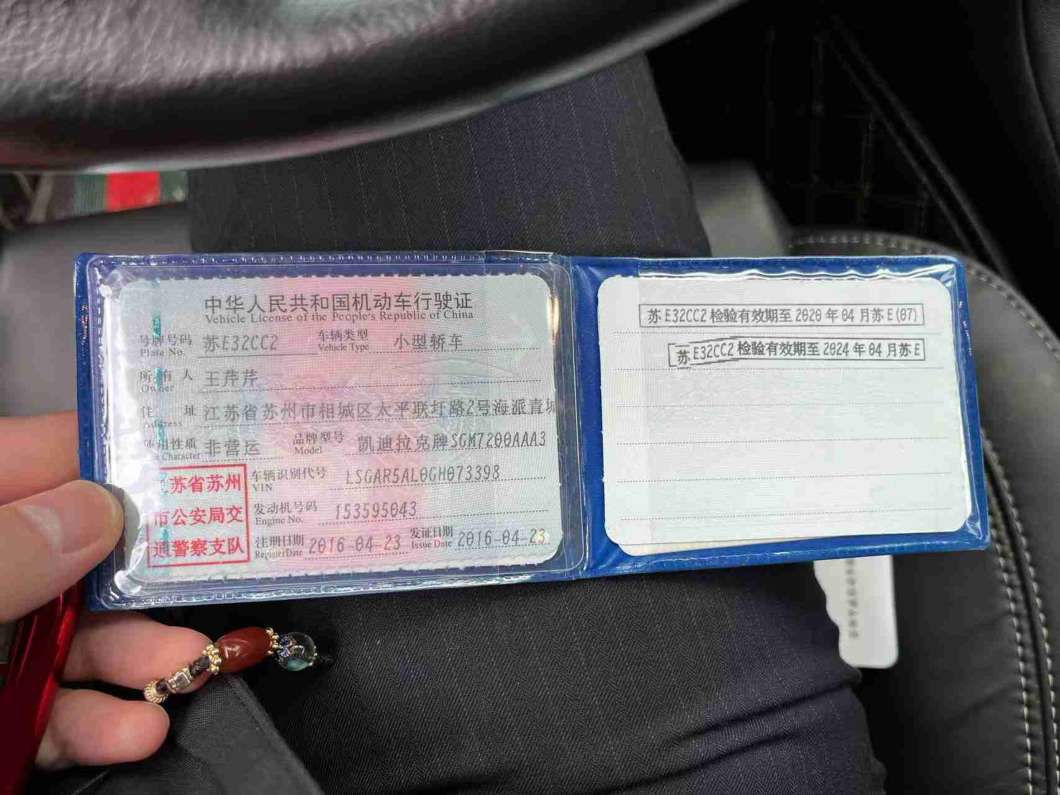 中华人民共和国机动车行驶证
Vehicle License of the People's Republic of China
号牌号码 苏E32CC2 车辆类型 小型轿车
Plate No. Vehicle Type
所有人 王芹芹
Owner
住 址 江苏省苏州市相城区太平联圩路2号海派青城
Address
使用性质 非营运 品牌型号 凯迪拉克牌SGM7200AAA3
Character Model
苏省苏州
市公安局交
通警察支队
车辆识别代号 LSGAR5AL0GH073398
VIN
发动机号码 153595043
Engine No.
注册日期 2016-04-23 发证日期 2016-04-23
Register Date Issue Date
苏E32CC2检验有效期至2020年04月苏E(07)
苏E32CC2检验有效期至2024年04月苏E